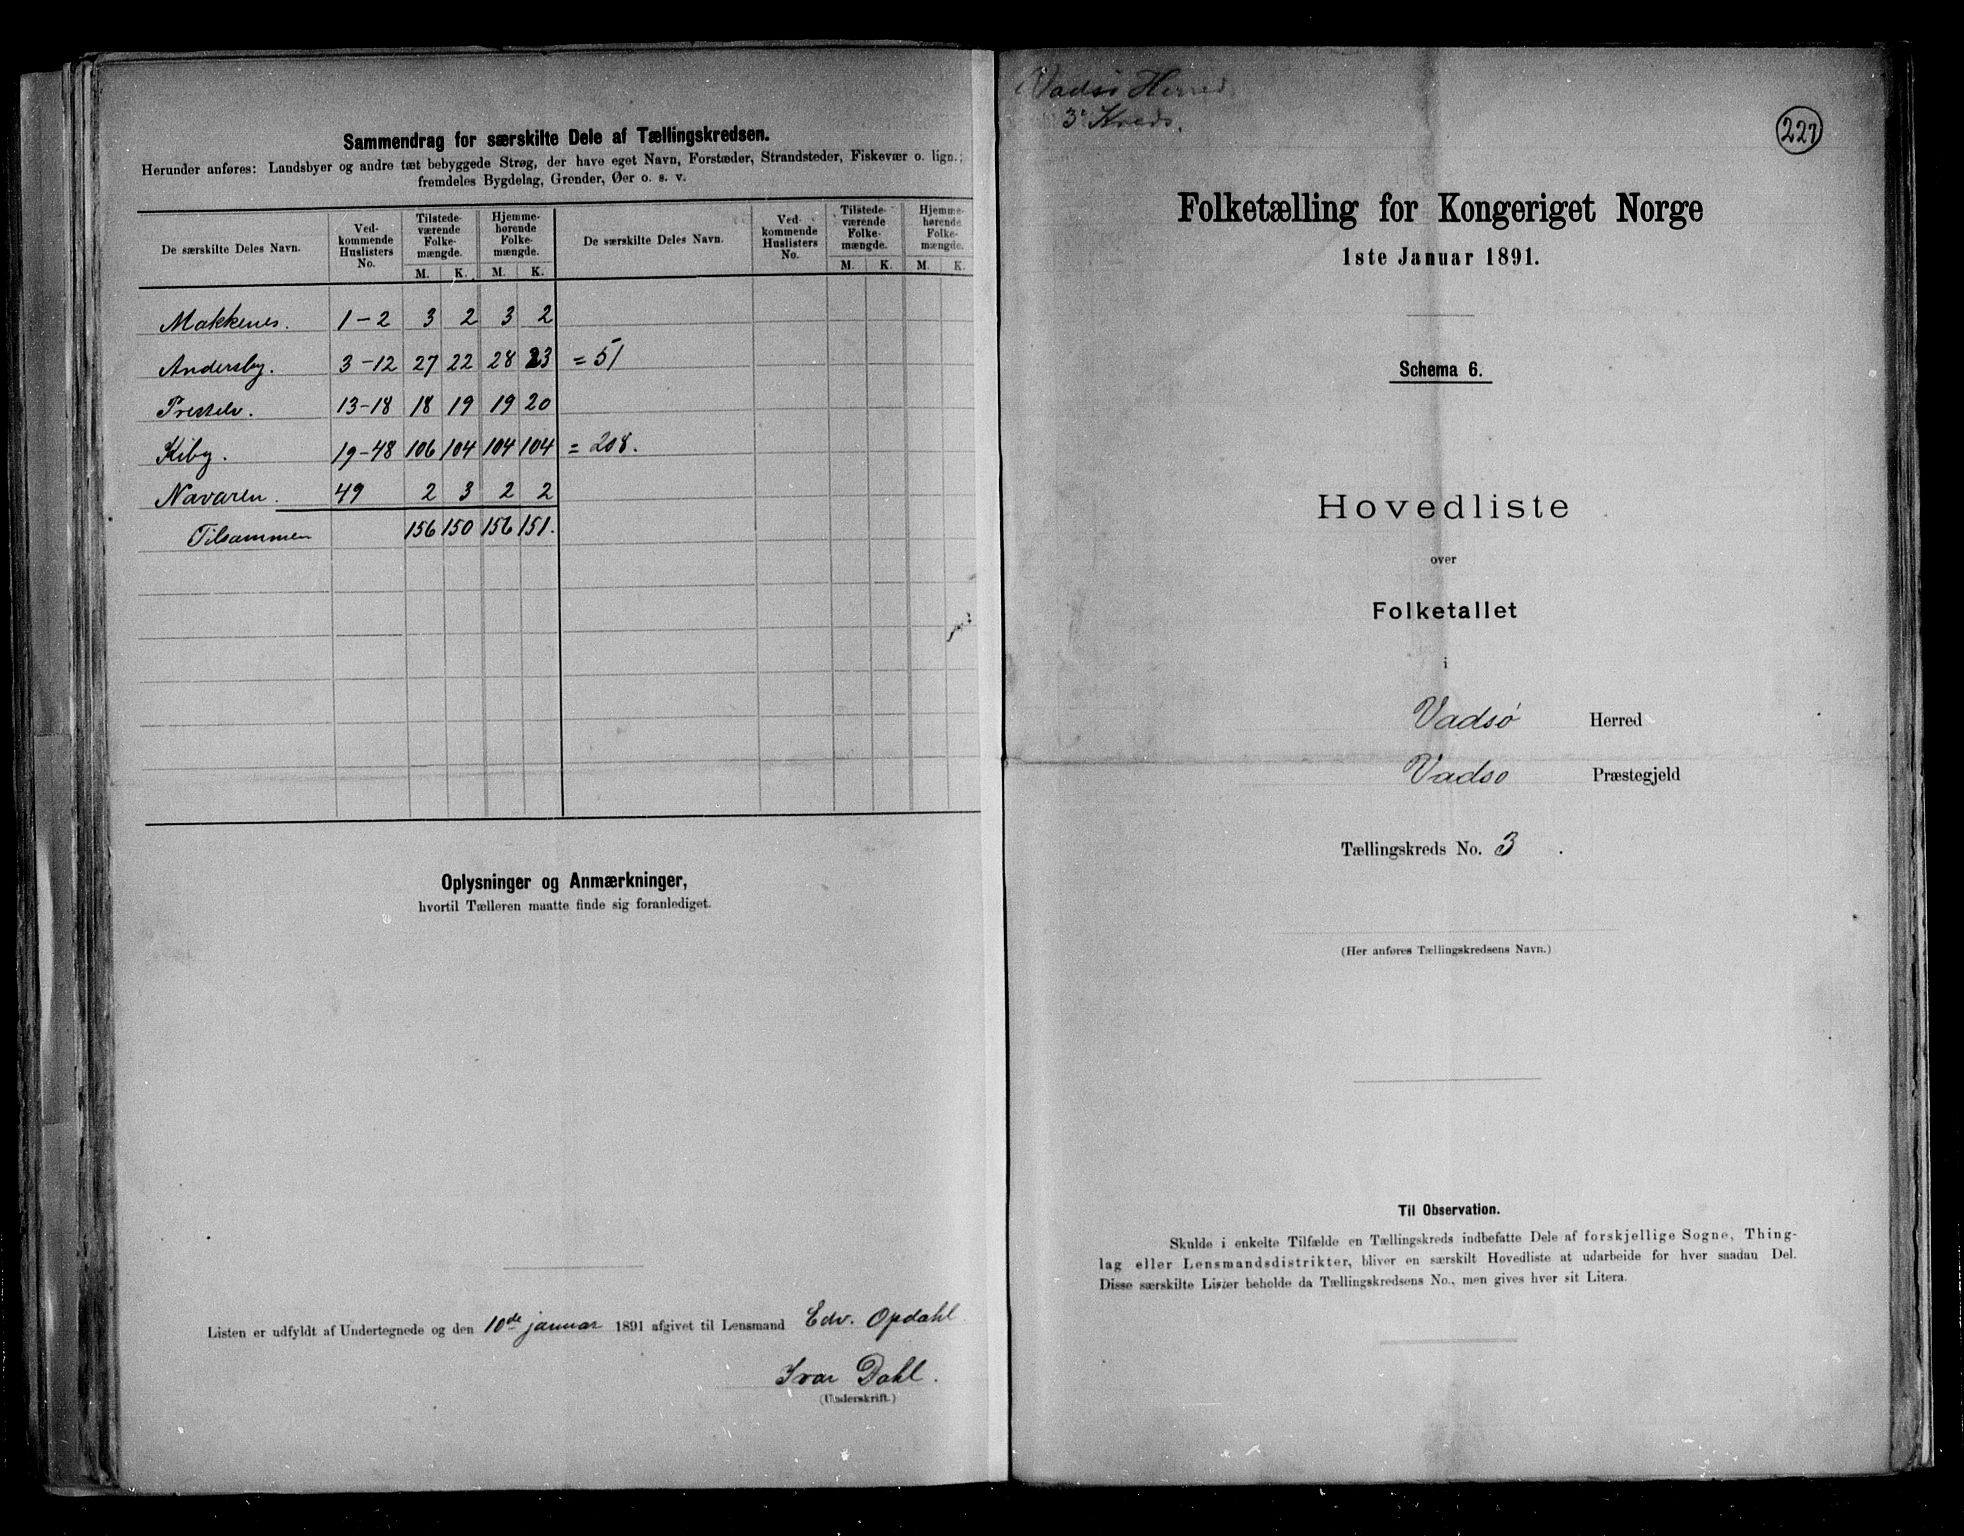 Sammendrag for særskilte Dele af Tællingskredsen.
Herunder anføres: Landsbyer og andre tæt bebyggede Strøg, der have eget Navn, Forstæder, Strandsteder, Fiskevær o. lign.;
fremdeles Bygdelag, Grender, Øer o. s. v.
De særskilte Deles Navn. Ved-kommende Huslisters No. Tilstede-værende Folke-mængde. M. K. Hjemme-hørende Folke-mængde. M. K. De særskilte Deles Navn. Ved-kommende Huslisters No. Tilstede-værende Folke-mængde. M. K. Hjemme-hørende Folke-mængde. M. K.
Makkenes. 1-2 3 2 3 2
Andersby. 3-12 27 22 28 23 = 51
13-18 18 19 19 20
Kiby. 19-48 106 104 104 104 = 208.
Navaren. 49 2 3 2 2
Tilsammen 156 150 156 151.
Oplysninger og Anmærkninger,
hvortil Tælleren maatte finde sig foranlediget.
Listen er udfyldt af Undertegnede og den 10de januar 1891 afgivet til Lensmand Edv. Opdahl.
Ivar Dahl.
(Underskrift.)
Vadsø Herred
3' Kreds.
227
Folketælling for Kongeriget Norge
1ste Januar 1891.
Schema 6.
Hovedliste
over
Folketallet
i
Vadsø Herred
Vadsø Præstegjeld
Tællingskreds No. 3.
(Her anføres Tællingskredsens Navn.)
Til Observation.
Skulde i enkelte Tilfælde en Tællingskreds indbefatte Dele af forskjellige Sogne, Thing-
lag eller Lensmandsdistrikter, bliver en særskilt Hovedliste at udarbeide for hver saadan Del.
Disse særskilte Lister beholde da Tællingskredsens No., men gives hver sit Litera.